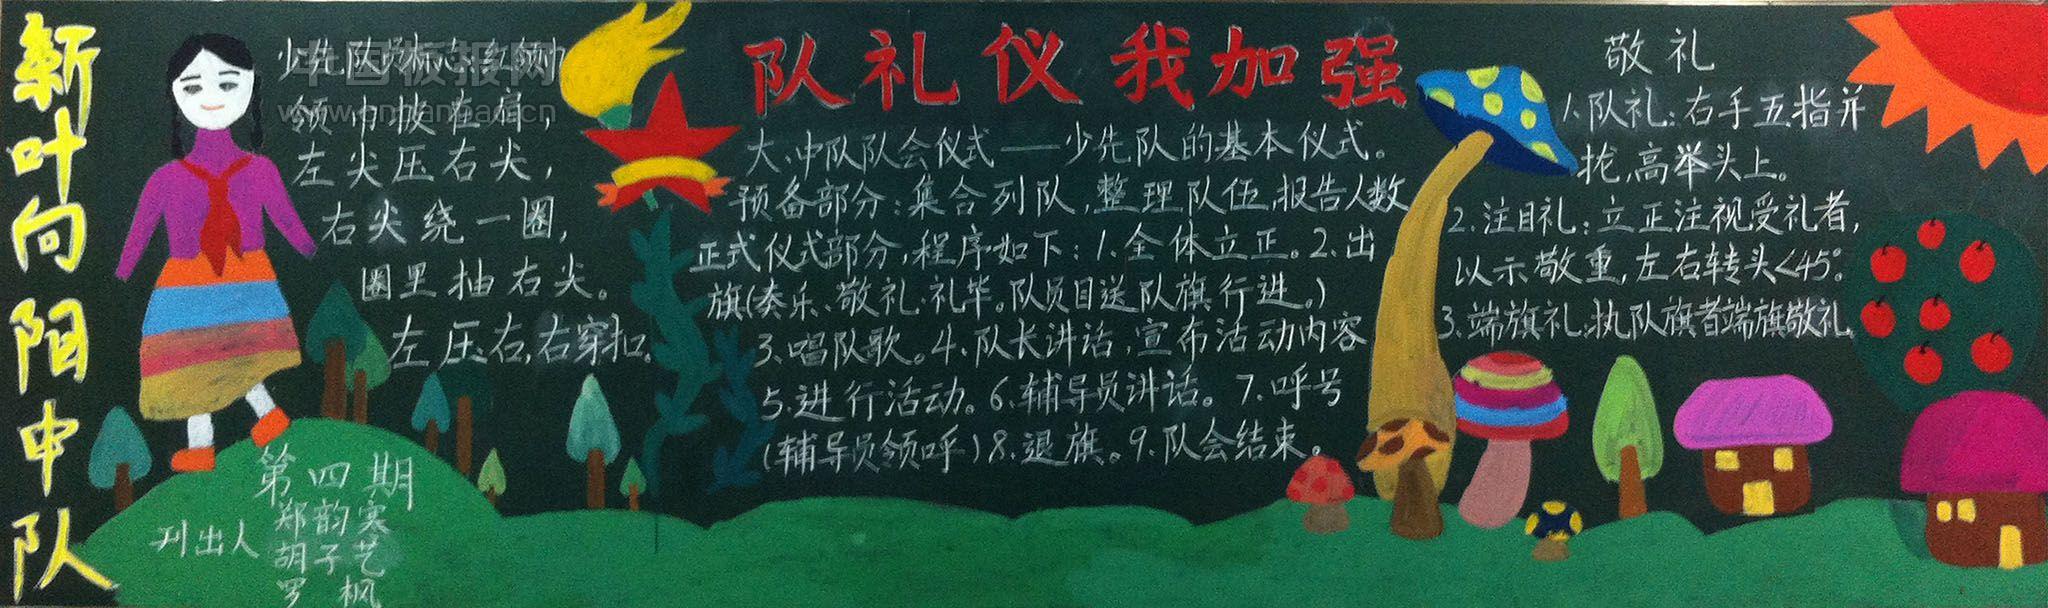 新叶向阳中队
中国板报网
www.cnbanbao.cn
少先队员标志:红领巾
领巾披在肩，
左尖压右尖，
右尖绕一圈，
圈里抽右尖。
左压右,右穿扣。
第四期
刊出人
郑韵寒
胡子艺
罗枫
队礼仪我加强
大、中队队会仪式——少先队的基本仪式。
预备部分:集合列队,整理队伍,报告人数
正式仪式部分,程序如下:1.全体立正。2.出
旗(奏乐、敬礼、礼毕。队员目送队旗行进。)
3.唱队歌。4.队长讲话,宣布活动内容
5.进行活动。6.辅导员讲话。7.呼号
(辅导员领呼)8.退旗。9.队会结束。
敬礼
1.队礼:右手五指并
拢,高举头上。
2.注目礼:立正注视受礼者,
以示敬重,左右转头<45°。
3.端旗礼:执队旗者端旗敬礼